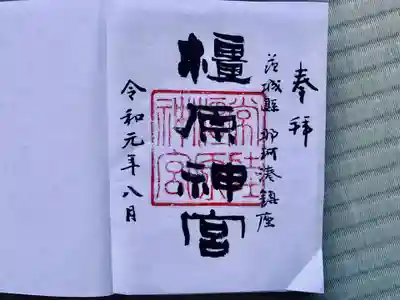 奉拝
茨城縣 那珂湊鎮座
橿原神宮
令和元年八月